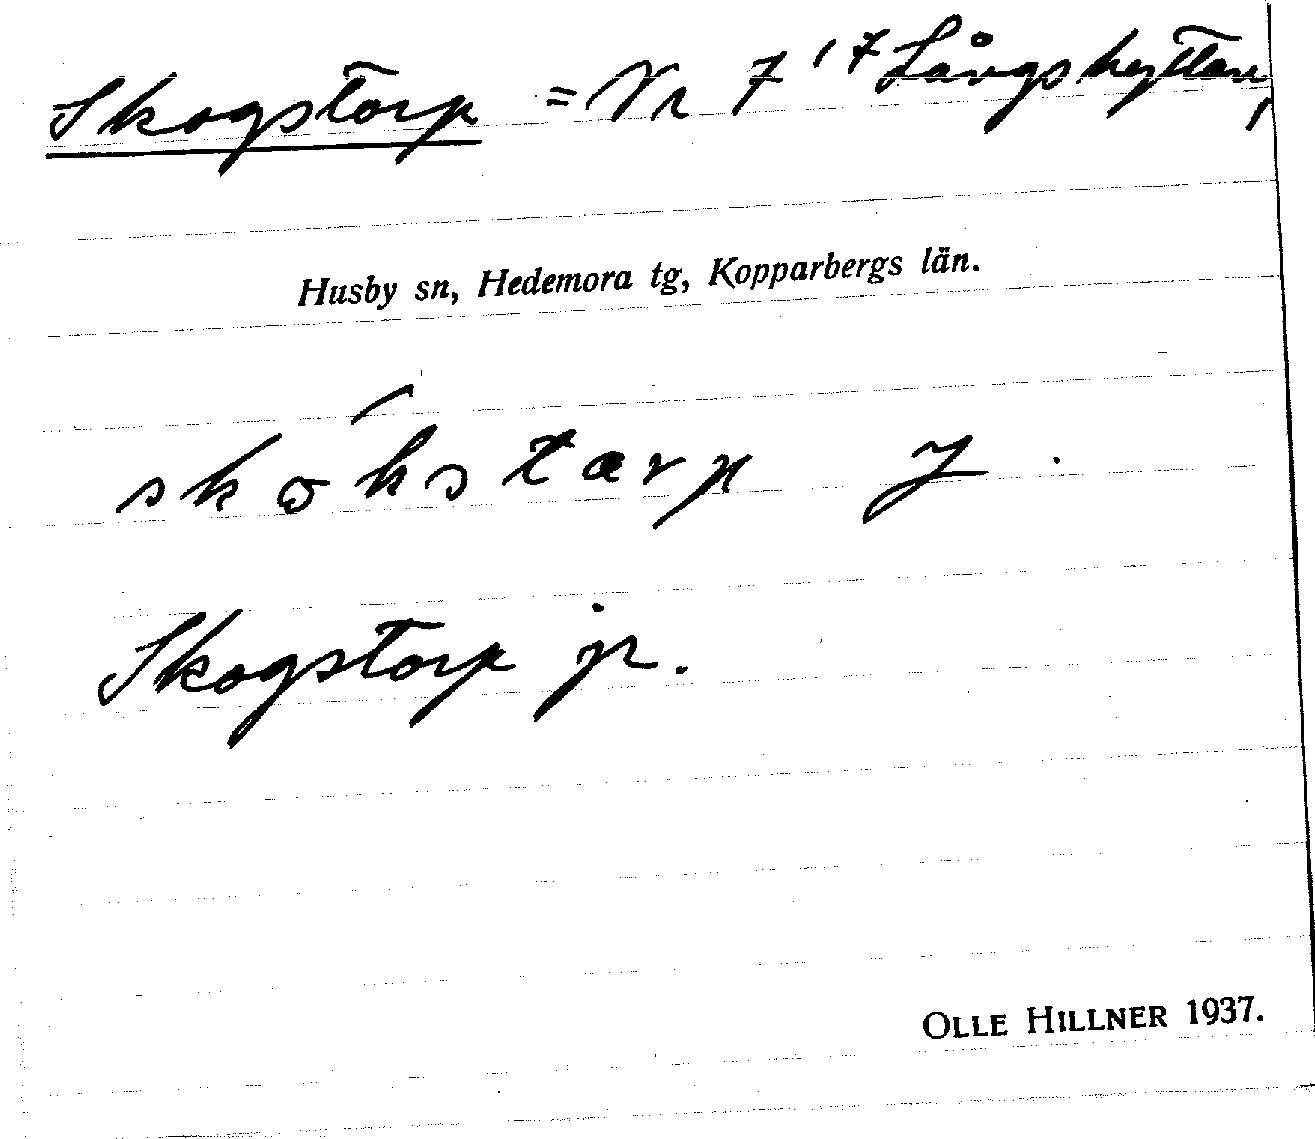 Skogstorp = Nr 7, 7 Långshyttan,
Husby sn, Hedemora tg, Kopparbergs län.
skókstarp
Skogstorp jr.
OLLE HILLNER 1937.